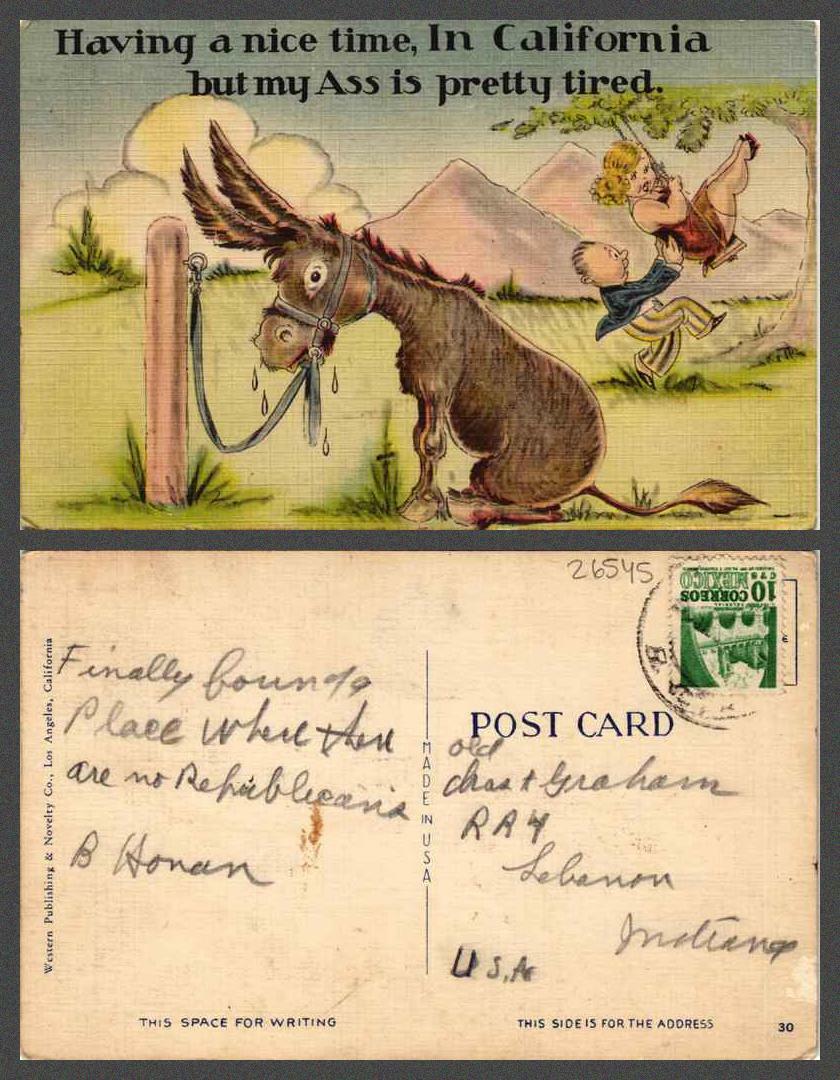 Having a nice time, In California
but my Ass is pretty tired.
26545
10 CTS
CORREOS
MEXICO
Western Publishing & Novelty Co., Los Angeles, California
Finally found a
Place where there
are no Republicans
B Honan
POST CARD
MADE IN USA
old
Chas + Graham
RR4
Lebanon
Indiana
U S, A
THIS SPACE FOR WRITING
THIS SIDE IS FOR THE ADDRESS
30